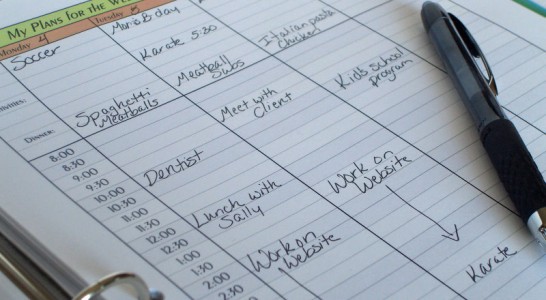 My Plans for the We
Monday 4
Tuesday 5
Soccer
Mario B-day
Karate 5:30
Activities:
Spaghetti
Meatballs
Meatball
Subs
Italian pasta
Chicken
Dinner:
Meet with
Client
Kids school
program
8:00
8:30
9:00
9:30
10:00
10:30
11:00
11:30
12:00
12:30
1:00
1:30
2:00
2:30
Dentist
Lunch with
Sally
Work on
Website
Work on
Website
Karate